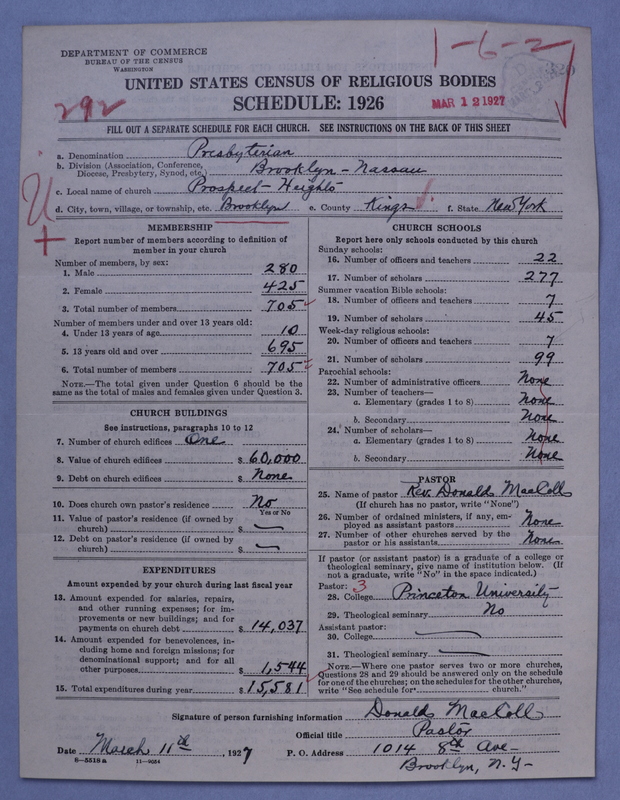 DEPARTMENT OF COMMERCE
BUREAU OF THE CENSUS
WASHINGTON
1-6-2
UNITED STATES CENSUS OF RELIGIOUS BODIES
SCHEDULE: 1926
292
MAR 12 1927
FILL OUT A SEPARATE SCHEDULE FOR EACH CHURCH. SEE INSTRUCTIONS ON THE BACK OF THIS SHEET
a. Denomination Presbyterian
b. Division (Association, Conference, Diocese, Presbytery, Synod, etc.) Brooklyn-Nassau
c. Local name of church Prospect-Heights
d. City, town, village, or township, etc. Brooklyn e. County Kings f. State New York
MEMBERSHIP
Report number of members according to definition of
member in your church
Number of members, by sex:
1. Male 280
2. Female 425
3. Total number of members 705
Number of members under and over 13 years old:
4. Under 13 years of age 10
5. 13 years old and over 695
6. Total number of members 705
NOTE.—The total given under Question 6 should be
same as the total of males and females given under Question 3.
CHURCH BUILDINGS
See instructions, paragraphs 10 to 12
7. Number of church edifices One
8. Value of church edifices $ 60,000
9. Debt on church edifices $ None
10. Does church own pastor's residence No
Yes or No
11. Value of pastor's residence (if owned by
church) $ —
12. Debt on pastor's residence (if owned by
church) $ —
EXPENDITURES
Amount expended by your church during last fiscal year
13. Amount expended for salaries, repairs,
and other running expenses; for im-
provements or new buildings; and for
payments on church debt $ 14,037
14. Amount expended for benevolences, in-
cluding home and foreign missions; for
denominational support; and for all
other purposes $ 1,544
15. Total expenditures during year $ 15,581
CHURCH SCHOOLS
Report here only schools conducted by this church
Sunday schools:
16. Number of officers and teachers 22
17. Number of scholars 277
Summer vacation Bible schools:
18. Number of officers and teachers 7
19. Number of scholars 45
Week-day religious schools:
20. Number of officers and teachers 7
21. Number of scholars 99
Parochial schools:
22. Number of administrative officers None
23. Number of teachers—
a. Elementary (grades 1 to 8) None
b. Secondary None
24. Number of scholars—
a. Elementary (grades 1 to 8) None
b. Secondary None
PASTOR
25. Name of pastor Rev. Donald MacColl
(If church has no pastor, write "None")
26. Number of ordained ministers, if any, em-
ployed as assistant pastors None
27. Number of other churches served by the
pastor or his assistants None
If pastor (or assistant pastor) is a graduate of a college or
theological seminary, give name of institution below. (If
not a graduate, write "No" in the space indicated.)
Pastor: 3
28. College Princeton University
29. Theological seminary No
Assistant pastor:
30. College —
31. Theological seminary —
NOTE.—Where one pastor serves two or more churches,
Questions 28 and 29 should be answered only on the schedule
for one of the churches; on the schedules for the other churches,
write "See schedule for church."
Signature of person furnishing information Donald MacColl
Official title Pastor
Date March 11th, 1927 P. O. Address 1014 8th Ave-
8-5518a 11-9054
Brooklyn, N.Y-